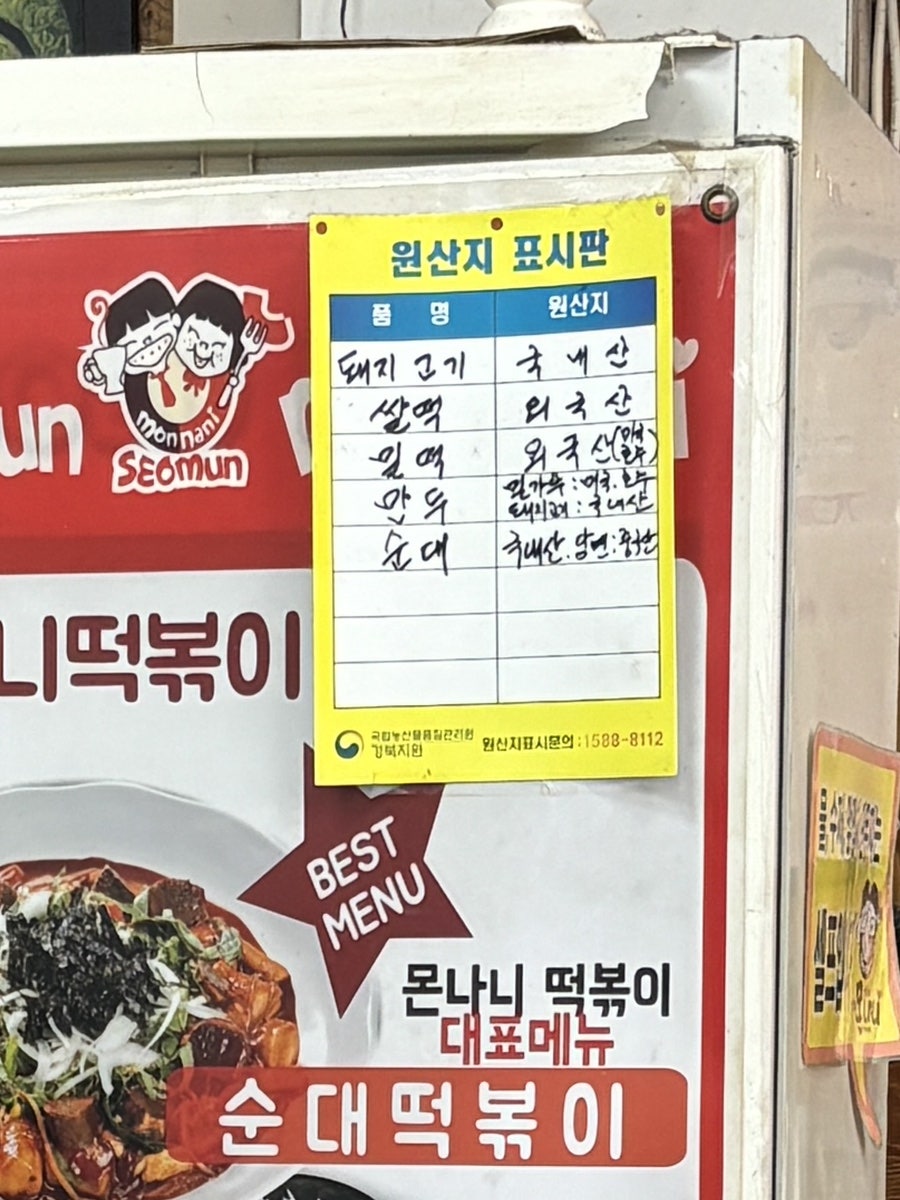 원산지 표시판
품 명 원산지
돼지고기 국내산
쌀떡 외국산
밀떡 외국산(미국 호주)
만두 밀가루:미국.호주
돼지고기:국내산
순대 국내산.당면:중국산
국립농산물품질관리원
경북지원
원산지표시문의:1588-8112
un
monnani
SEOMUN
니떡볶이
BEST
MENU
몬나니 떡볶이
대표메뉴
순대떡볶이
물
셀프